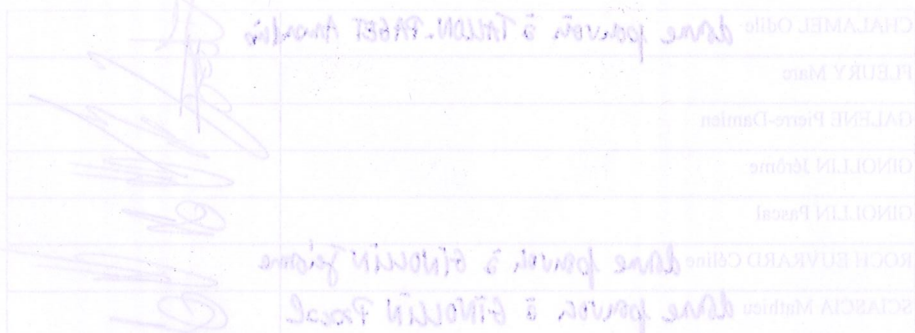 CHALAMEL Odile donne pouvoir à TALLON-PAGET Amandine
FLEURY Marc
GALENE Pierre-Damien
GINOLLIN Jérôme
GINOLLIN Pascal
ROCH EUVRARD Céline donne pouvoir à GINOLLIN Jérôme
SCIASCIA Mathieu donne pouvoir à GINOLLIN Pascal